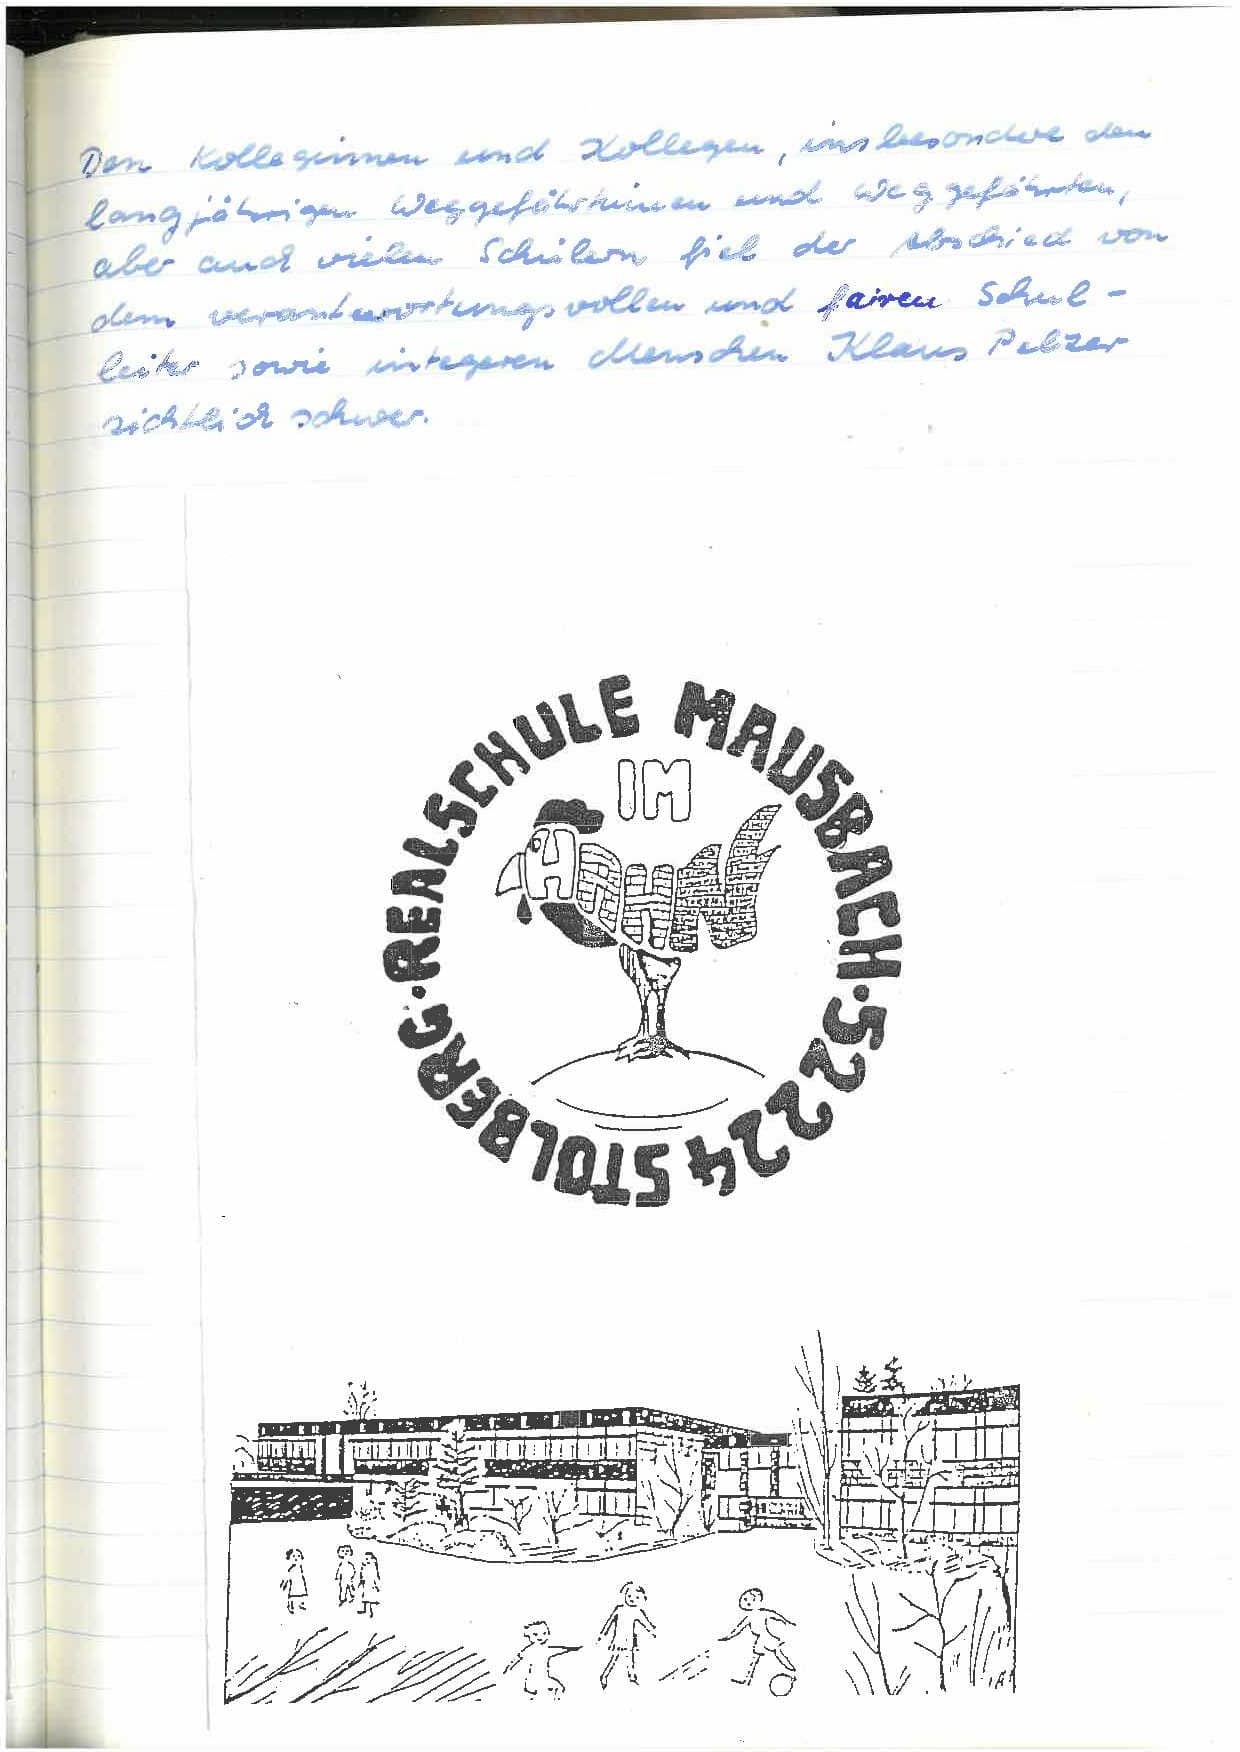 Den Kolleginnen und Kollegen, insbesondere den
langjährigen Weggefährtinnen und Weggefährten,
aber auch vielen Schülern fiel der Abschied von
dem verantwortungsvollen und fairen Schul-
leiter sowie integeren Menschen Klaus Pelzer
sichtlich schwer.
REALSCHULE MAUSBACH · 52224 STOLBERG ·
IM
HAHN